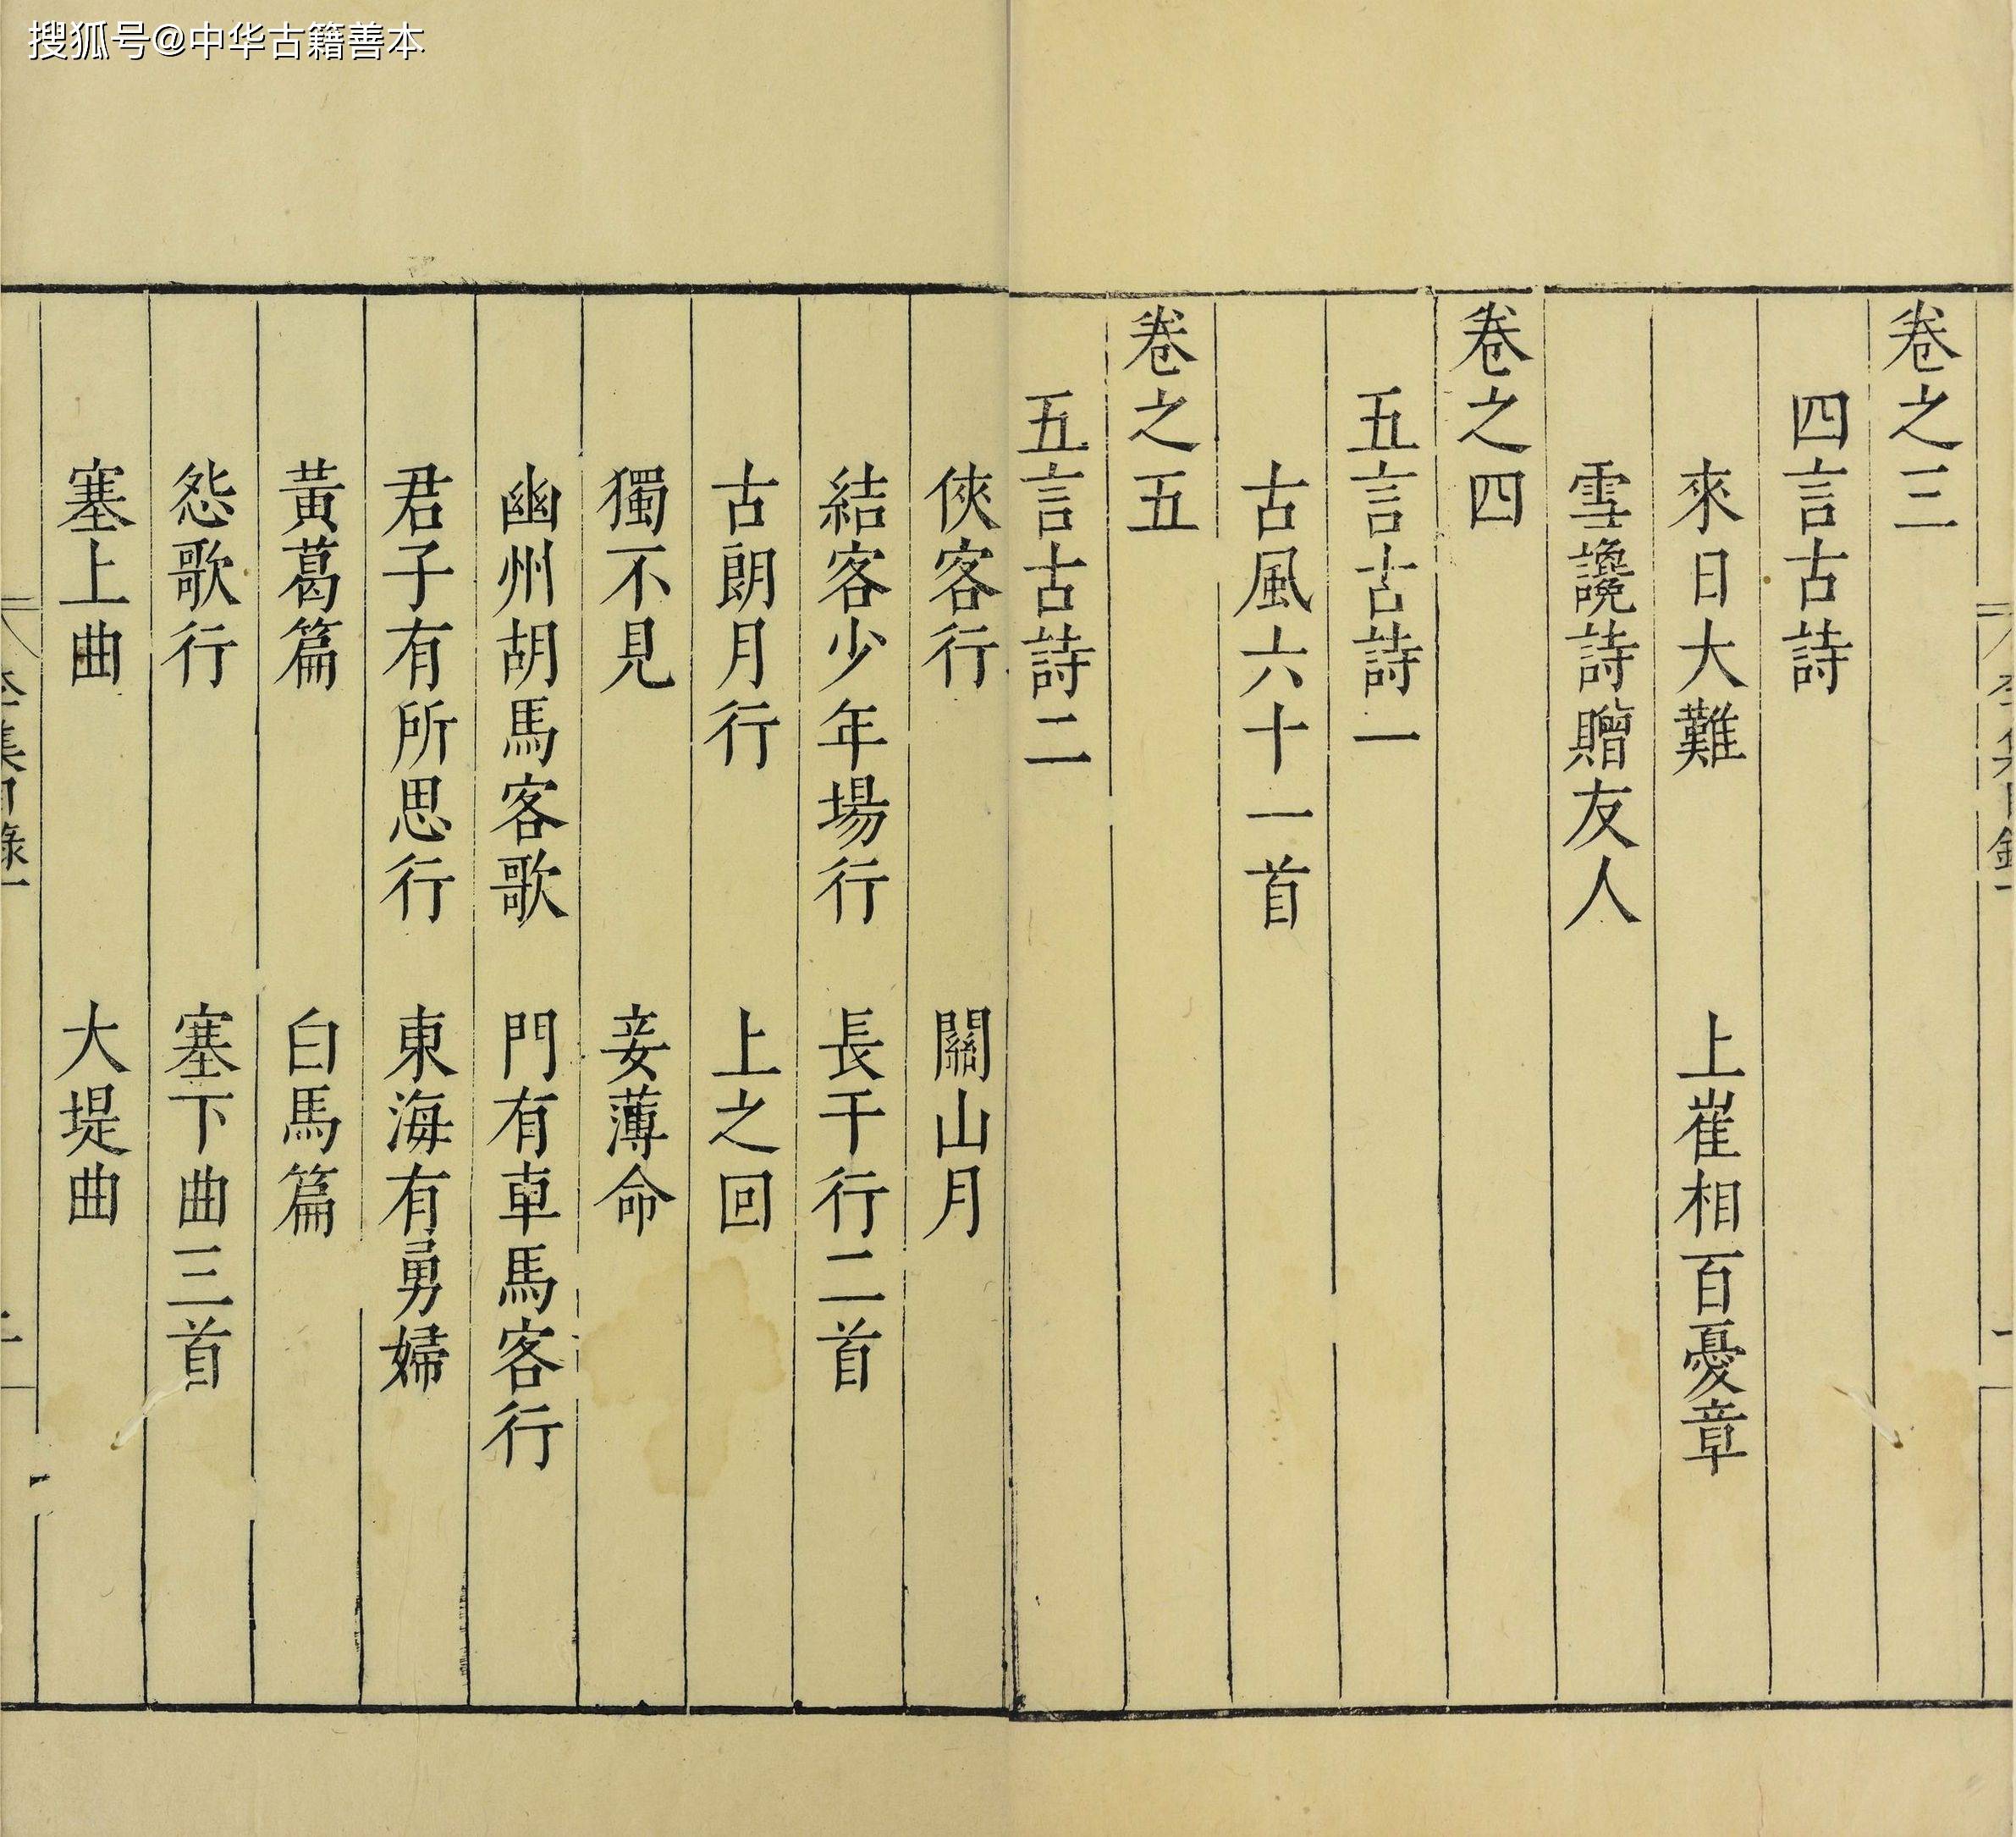 搜狐号@中华古籍善本
卷之三
四言古詩
來日大難 上崔相百憂章
雪讒詩贈友人
卷之四
五言古詩一
古風六十一首
卷之五
五言古詩二
俠客行 關山月
結客少年場行 長干行二首
古朗月行 上之回
獨不見 妾薄命
幽州胡馬客歌 門有車馬客行
君子有所思行 東海有勇婦
黃葛篇 白馬篇
怨歌行 塞下曲三首
塞上曲 大堤曲